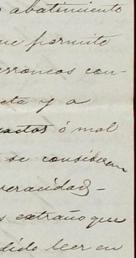 abatimiento
que permite
erroneos con-
eta y a
actos ó mal
se consideran
veracidad-
s extraño que
dido leer en